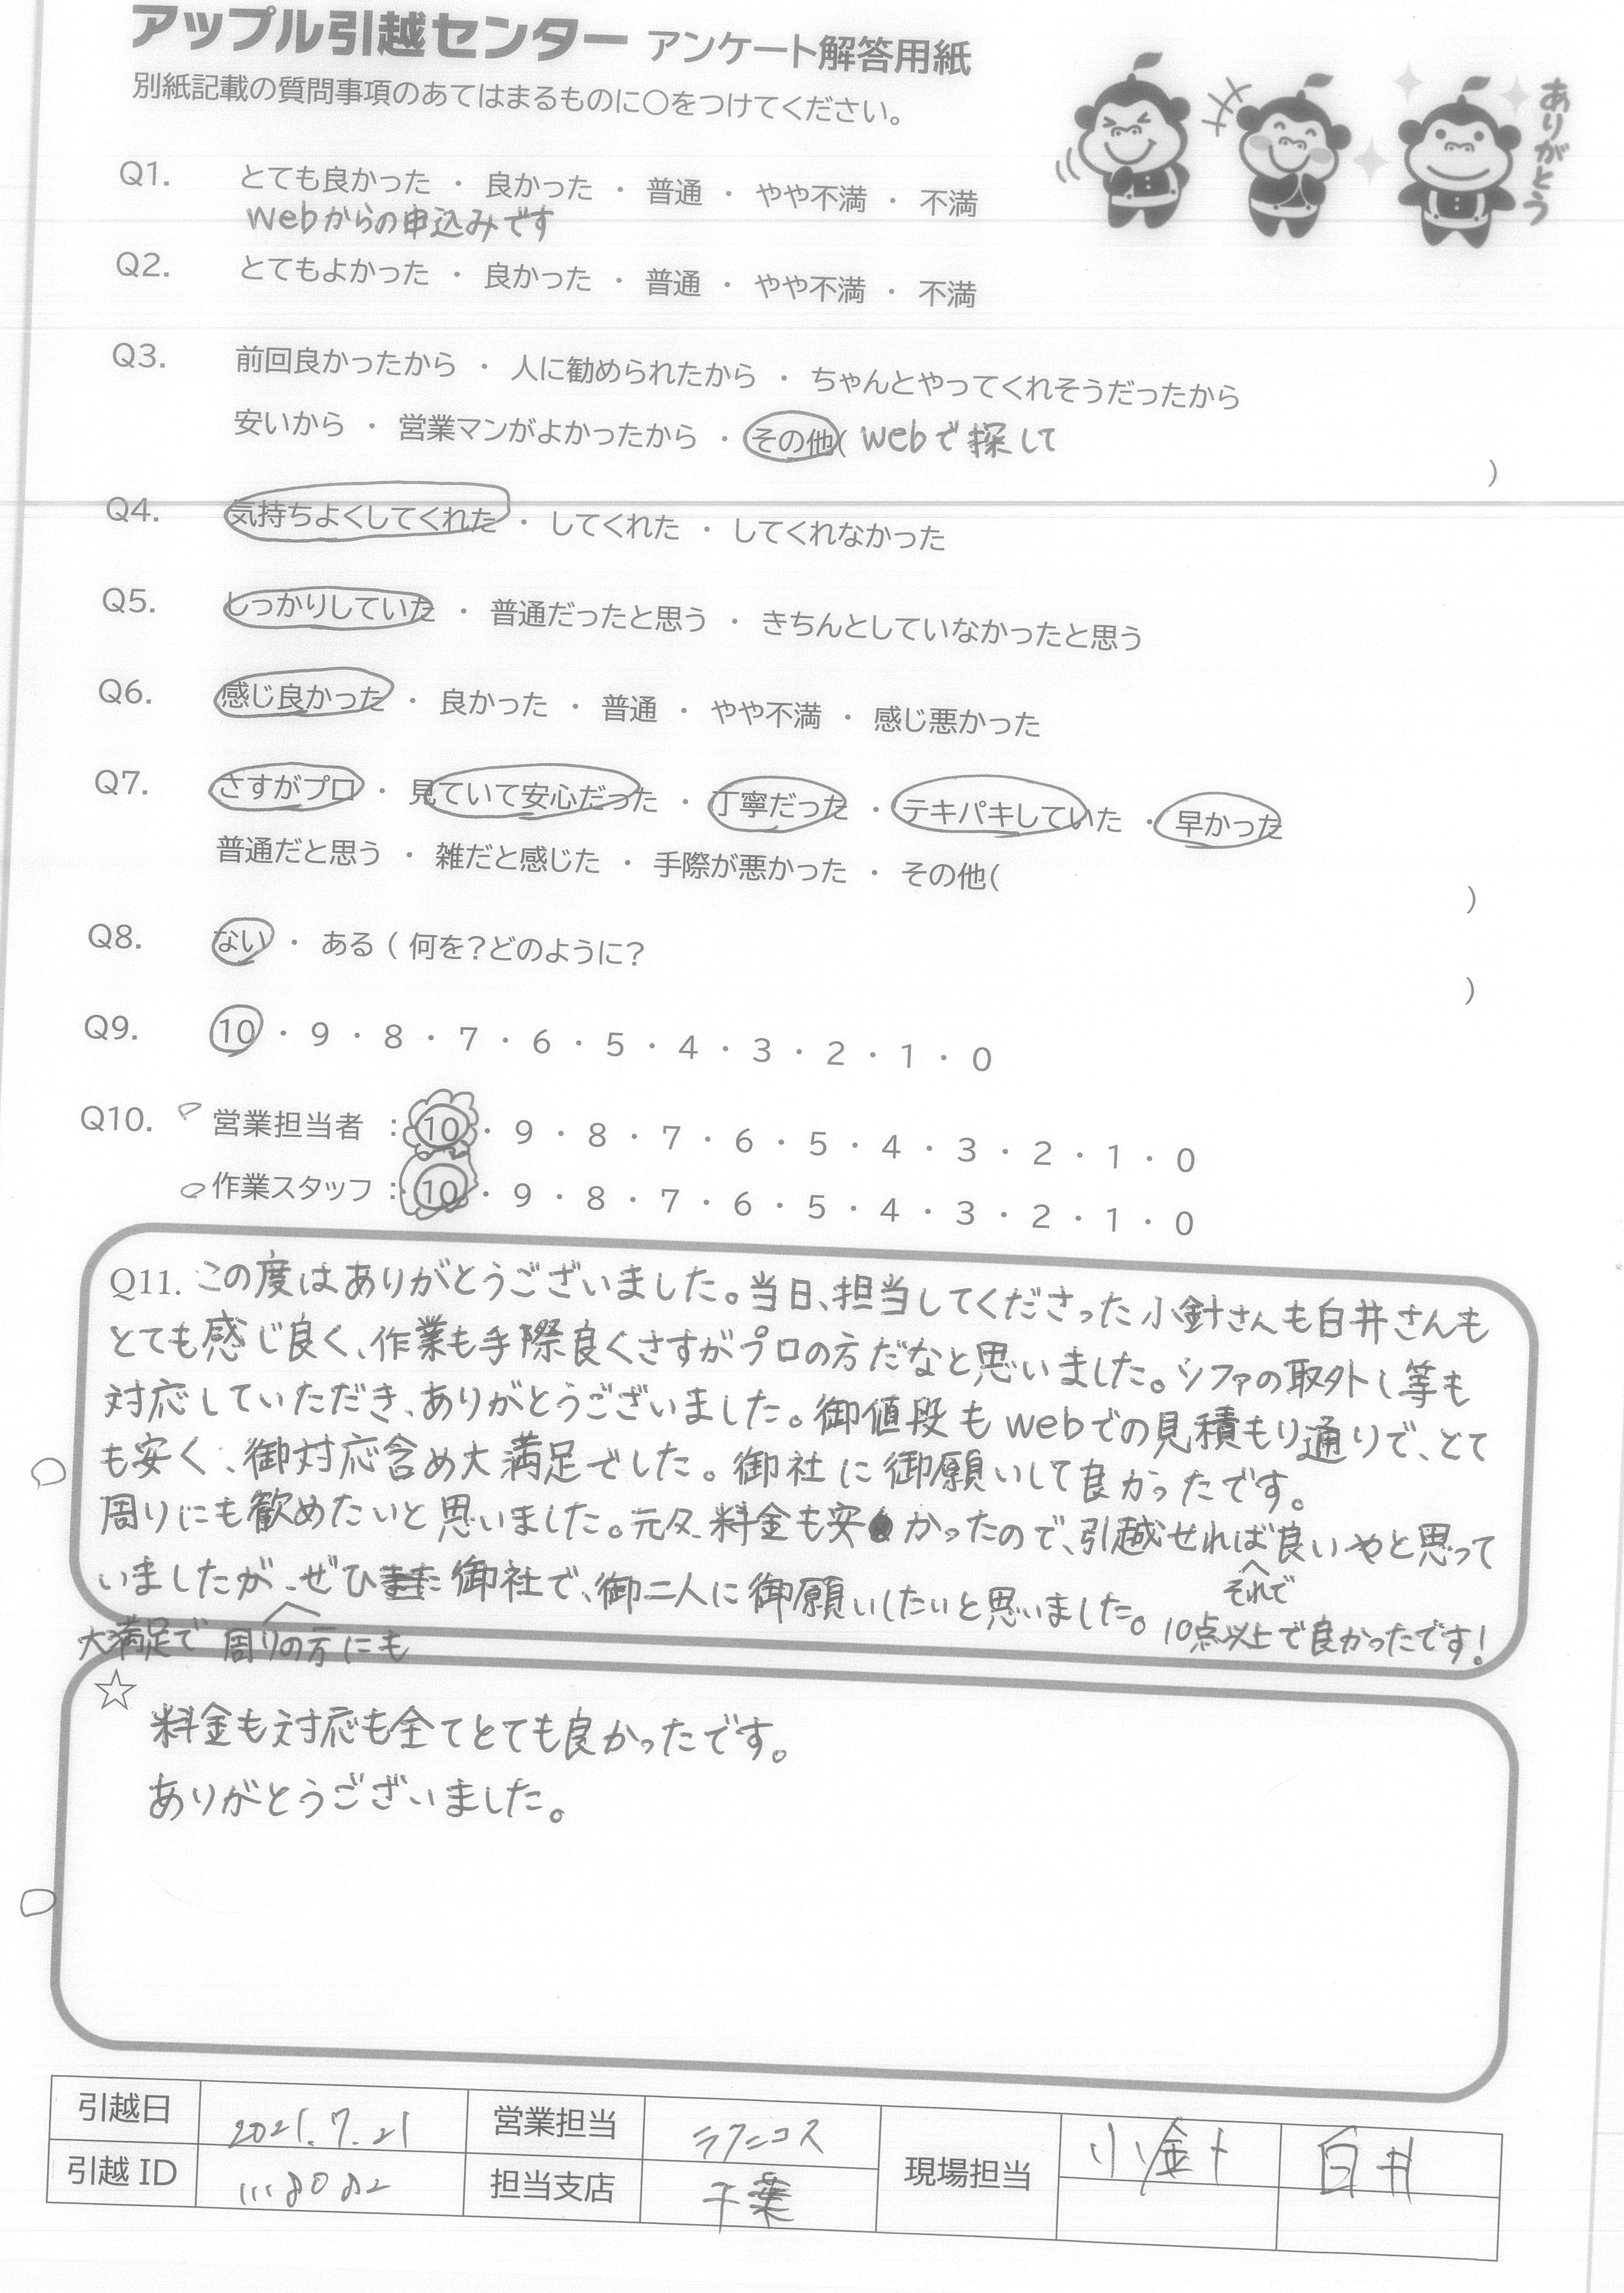 アップル引越センター アンケート解答用紙
別紙記載の質問事項のあてはまるものに○をつけてください。
ありがとう
Q1. とても良かった ・ 良かった ・ 普通 ・ やや不満 ・ 不満
webからの申込みです
Q2. とてもよかった ・ 良かった ・ 普通 ・ やや不満 ・ 不満
Q3. 前回良かったから ・ 人に勧められたから ・ ちゃんとやってくれそうだったから
安いから ・ 営業マンがよかったから ・ その他( webで探して )
Q4. 気持ちよくしてくれた ・ してくれた ・ してくれなかった
Q5. しっかりしていた ・ 普通だったと思う ・ きちんとしていなかったと思う
Q6. 感じ良かった ・ 良かった ・ 普通 ・ やや不満 ・ 感じ悪かった
Q7. さすがプロ ・ 見ていて安心だった ・ 丁寧だった ・ テキパキしていた ・ 早かった
普通だと思う ・ 雑だと感じた ・ 手際が悪かった ・ その他( )
Q8. ない ・ ある ( 何を?どのように? )
Q9. 10 ・ 9 ・ 8 ・ 7 ・ 6 ・ 5 ・ 4 ・ 3 ・ 2 ・ 1 ・ 0
Q10. 営業担当者 : 10 ・ 9 ・ 8 ・ 7 ・ 6 ・ 5 ・ 4 ・ 3 ・ 2 ・ 1 ・ 0
作業スタッフ : 10 ・ 9 ・ 8 ・ 7 ・ 6 ・ 5 ・ 4 ・ 3 ・ 2 ・ 1 ・ 0
Q11. この度はありがとうございました。当日、担当してくださった小針さんも白井さんも
とても感じ良く、作業も手際良くさすがプロの方だなと思いました。ソファの取外し等も
対応していただき、ありがとうございました。御値段もwebでの見積もり通りで、とて
も安く、御対応含め大満足でした。御社に御願いして良かったです。
周りにも歓めたいと思いました。元々、料金も安かったので、引越せれば良いやと思って
いましたが、ぜひ御社で、御二人に御願いしたいと思いました。
それで
大満足で 周りの方にも
10点以上で良かったです!
☆
料金も対応も全てとても良かったです。
ありがとうございました。
引越日 2021.7.21 営業担当 ラフニコス 現場担当 小針 白井
引越ID 1118082 担当支店 千葉